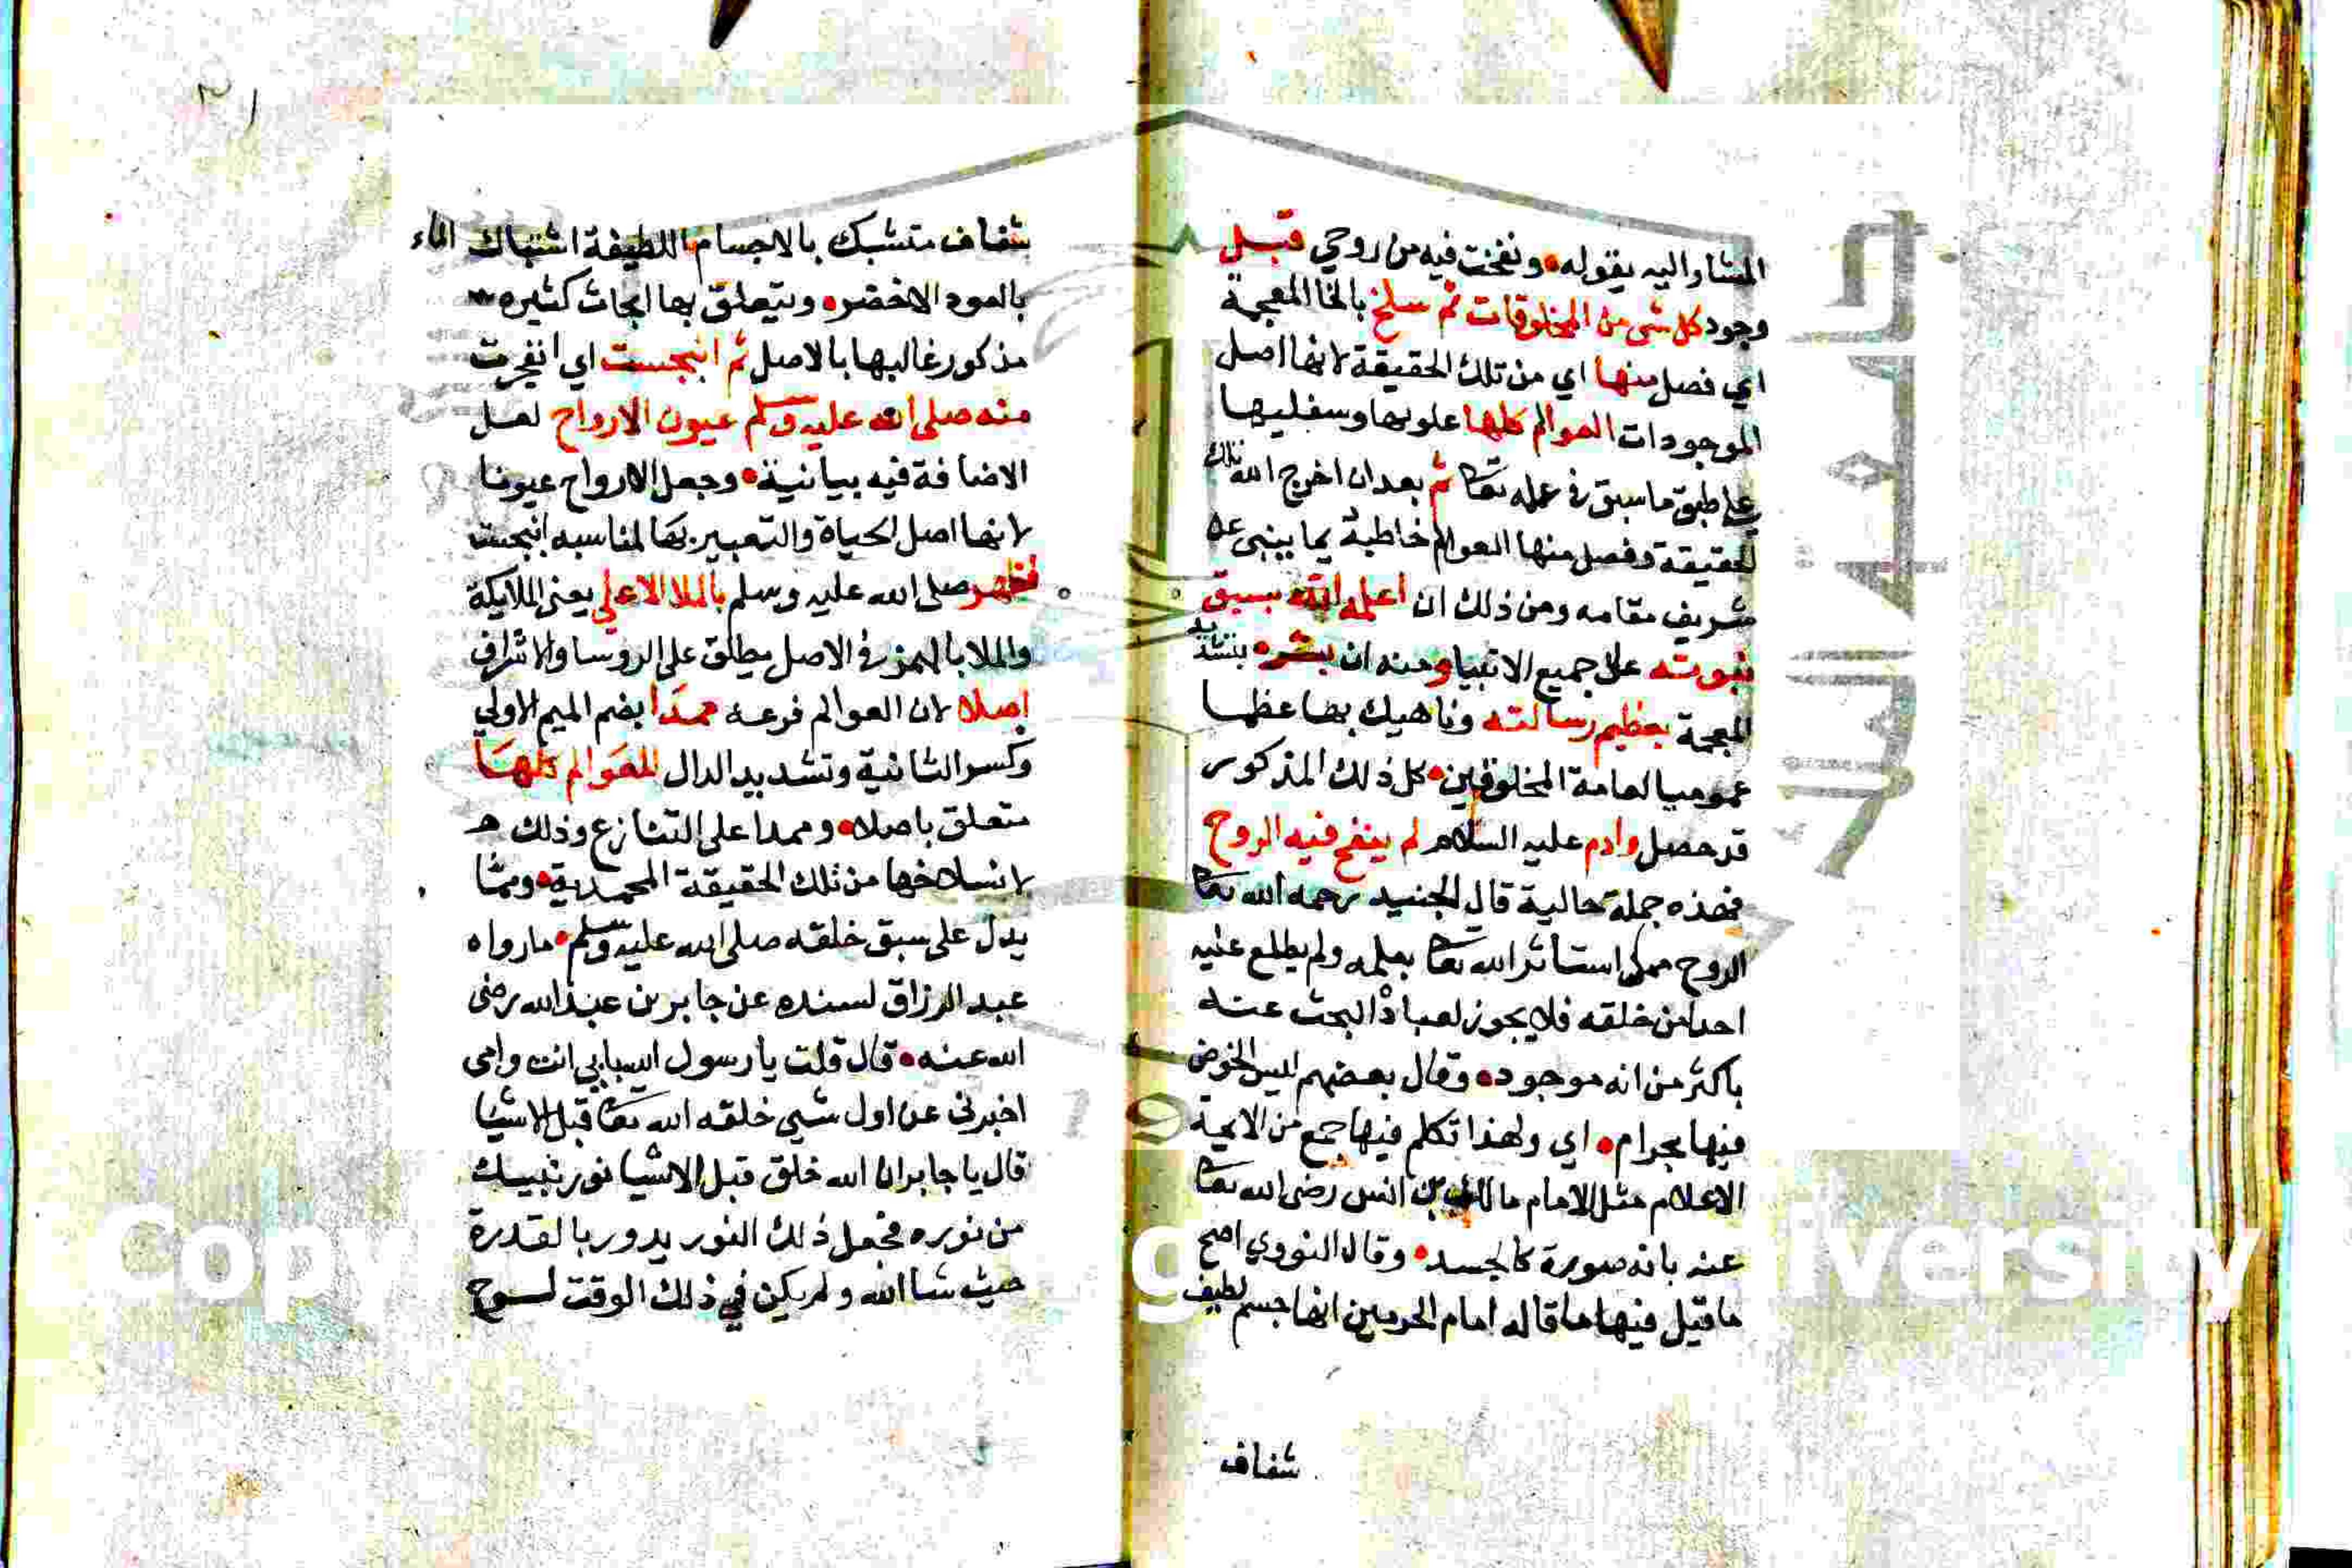 المشار اليه بقوله ونفخت فيه من روحي قبل
وجود كل شي من المخلوقات ثم سلخ بالخا المعجمة
اي فصل منها اي من تلك الحقيقة لانها اصل
الموجودات العوالم كلها علويها وسفليها
علي طبق ما سبق في علمه تعا ثم بعد ان اخرج الله تلك
الحقيقة وفصل منها العوالم خاطبه بما ينبي عن
شريف مقامه ومن ذلك ان اعلمه الله بسبق
نبوته على جميع الانبيا ومنه ان بشره بتشديد
المعجمة بعظيم رسالته وناهيك بها عظما
عموميا لعامة المخلوقين كل ذلك المذكور
قد حصل وادم عليه السلام لم ينفخ فيه الروح
فهذه جملة حالية قال الجنيد رحمه الله تعا
الروح مما استأثر الله تعا بعلمه ولم يطلع عليه
احدا من خلقه فلا يجوز لعباده البحث عنه
باكثر من انه موجود وقال بعضهم ليس الخوض
فيها بحرام اي ولهذا تكلم فيها جمع من الايمة
الاعلام مثل الامام مالك بن انس رضي الله تعا
عنه بانه صورة كالجسد وقال النووي اصح
ما قيل فيها ما قاله امام الحرمين انها جسم لطيف
شفاف
شفاف متشبك بالاجسام اللطيفة اشتباك الماء
بالعود الاخضر ويتعلق بها ابحاث كثيره
مذكور غالبها بالاصل ثم انبجست اي انفجرت
منه صلى الله عليه وسلم عيون الارواح لعل
الاضافة فيه بيانية وجعل الارواح عيونا
لانها اصل الحياة والتعبير بها لمناسبه انبجست
فظهر صلى الله عليه وسلم بالملا الاعلي يعني الملايكة
والملا بالهمز في الاصل يطلق على الروسا والاشراف
اصلا لان العوالم فرعه ممدا بضم الميم الاولي
وكسر الثانية وتشديد الدال للعوالم كلها
متعلق باصلا وممدا على التنازع وذلك
لانسلاخها من تلك الحقيقة المحمدية ومما
يدل على سبق خلقه صلى الله عليه وسلم ما رواه
عبد الرزاق بسنده عن جابر بن عبد الله رضى
الله عنه قال قلت يا رسول الله بابي انت وامى
اخبرنى عن اول شيي خلقه الله تعا قبل الاشيا
قال يا جابر ان الله خلق قبل الاشيا نور نبيك
من نوره فجعل ذلك النور يدور بالقدرة
حيث شا الله ولم يكن في ذلك الوقت لوح